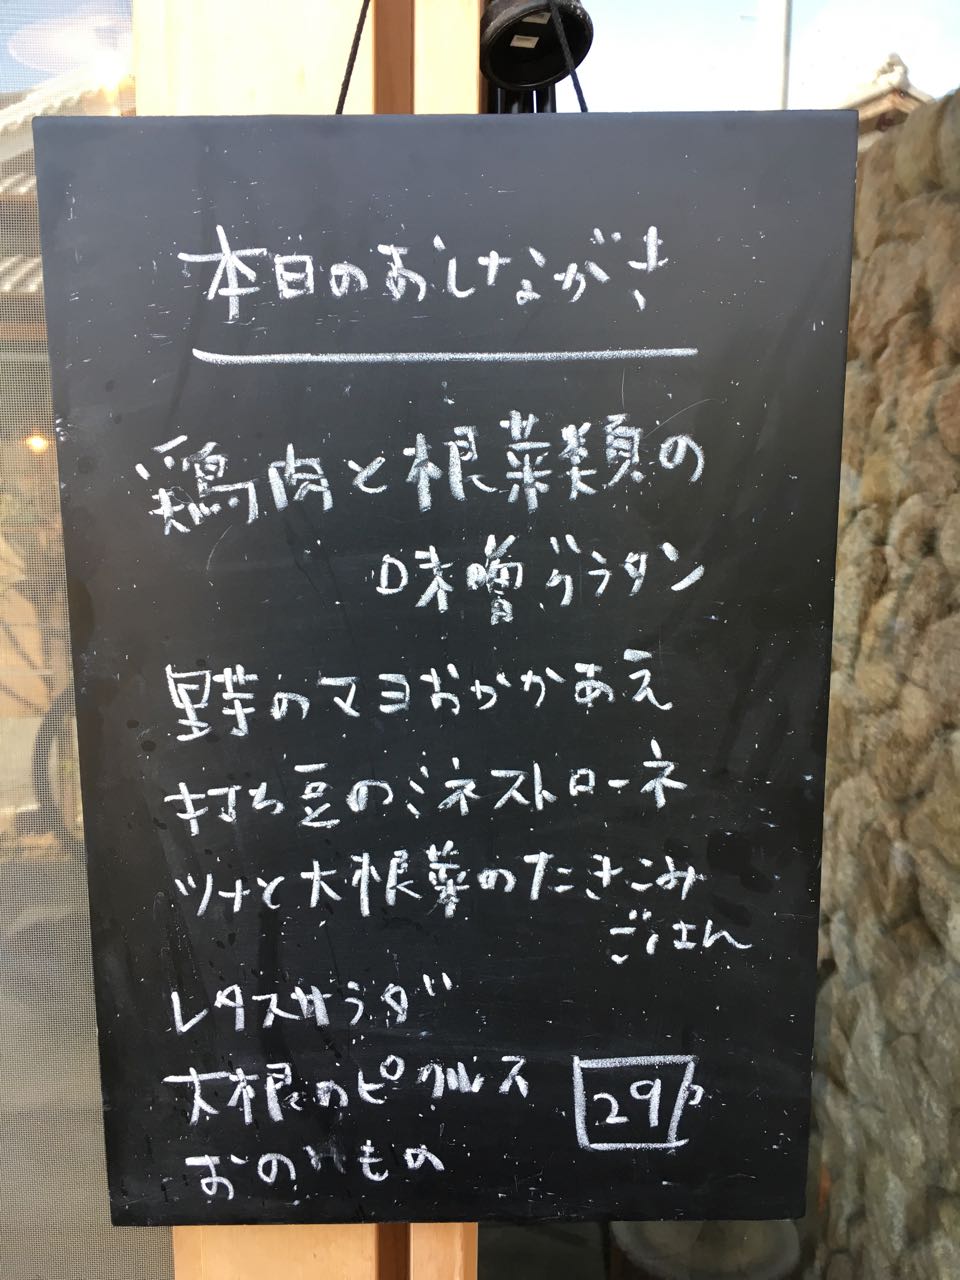 本日のおしながき
鶏肉と根菜類の
味噌グラタン
里芋のマヨおかかあえ
打ち豆のミネストローネ
ツナと大根葉のたきこみ
ごはん
レタスサラダ
大根のピクルス
29
おのみもの